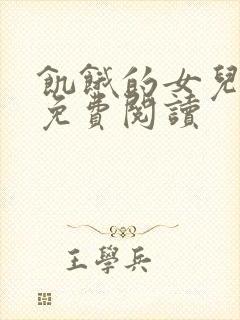 飢餓的女兒
免費閱讀
王學兵